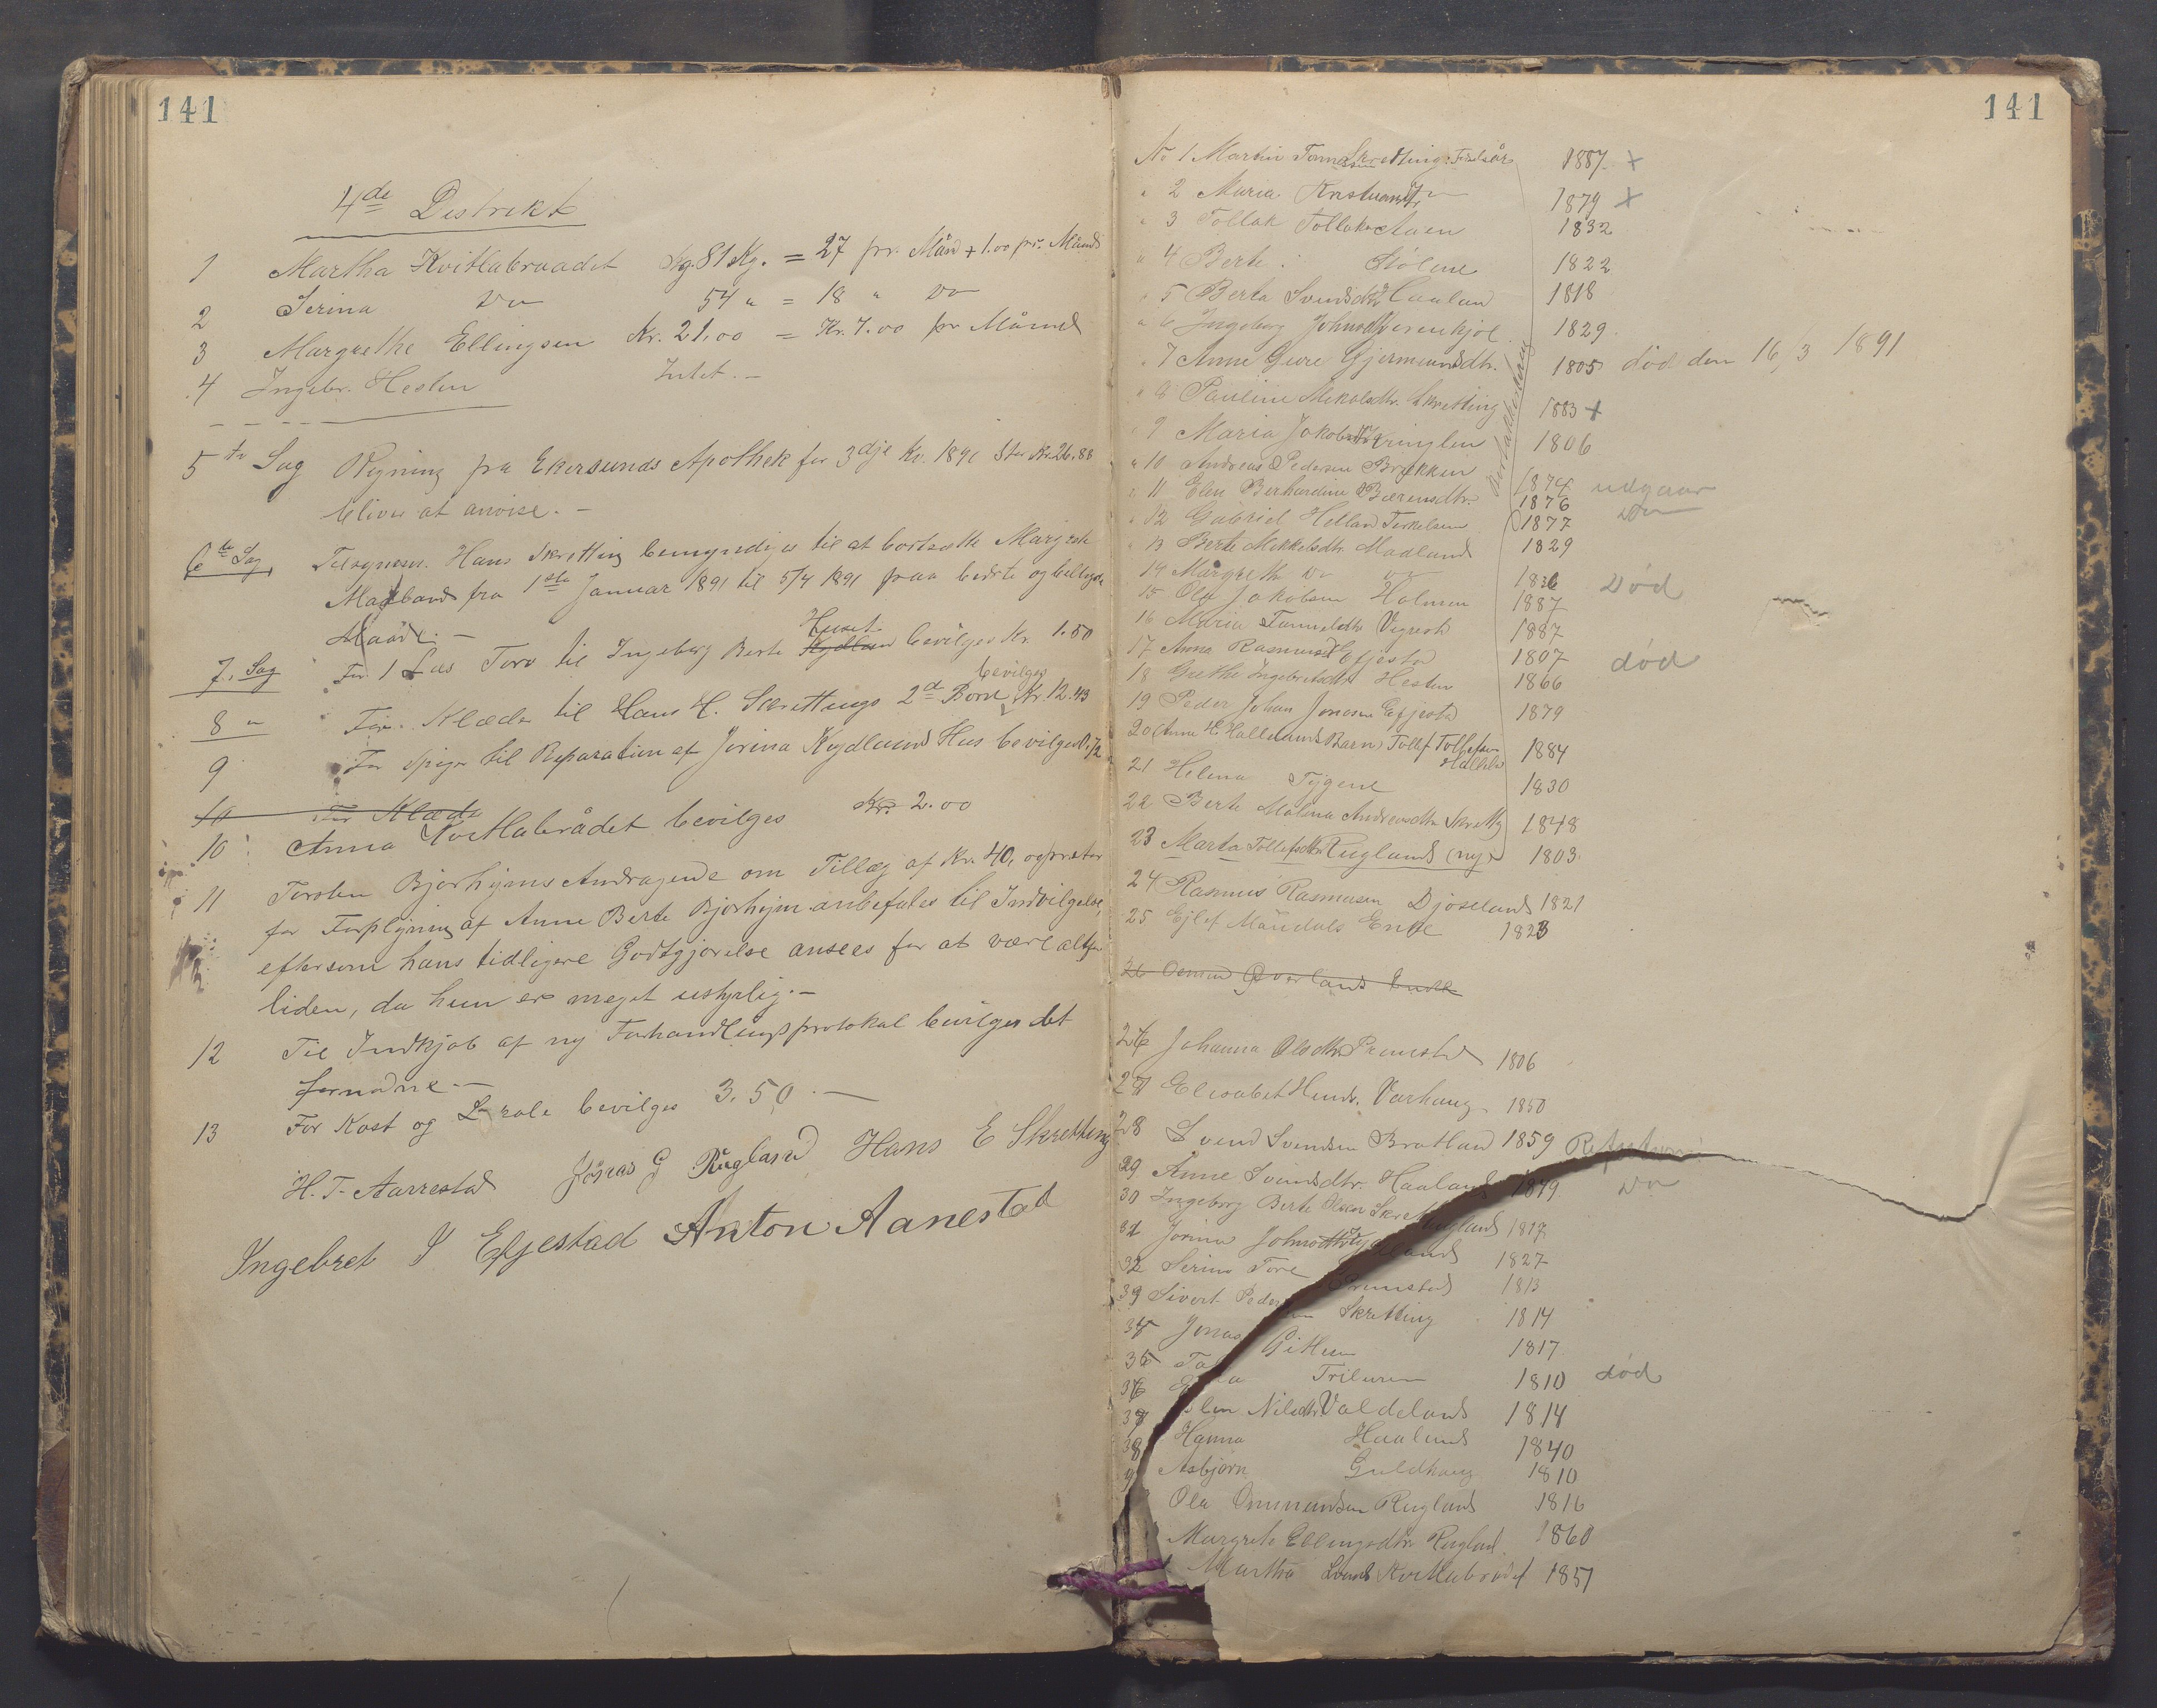 141
4de Distrikt
1 Martha Kvitlabraadet Kg. 81 Kg. = 27 pr. Måned + 1.00 pr. Måned
2 Serina Do 54 " = 18 " Do
3 Margrethe Ellingsen Kr. 21.00 = Kr. 7.00 pr Måned
4 Ingebr. Hesten Intet. -
5te Sag Regning fra Ekersunds Apothek for 3dje Kv. 1890 Stor Kr. 26.88
bliver at anvise. -
6te Sag Tilsynsm. Hans Skretting bemyndiges til at bortsætte Margrete
Madland fra 1ste Januar 1891 til 5/4 1891 paa bedste og billigste
Maade. -
7. Sag For 1 Læs Torv til Ingeborg Berte Huset bevilges Kr. 1.50
8 " For Klæder til Hans H. Skrettings 2de Børn bevilges Kr. 12.43
9 For Spiger til Reparation af Jorina Kydlands Hus bevilges
10 For Klæder
10 Anna Kvitlabrådet bevilges Kr. 2.00
11 Torsten Bjorhejms Andragende om Tillæg af Kr. 40,
for Forplejning af Anne Berte Bjorhejm anbefales til Indvilgelse,
eftersom hans tidligere Godtgjørelse ansees for at være altfor
liden, da hun er meget ustyrlig. -
12 Til Indkjøb af ny Forhandlingsprotokol bevilges det
fornødne. -
13 For Kost og Lokale bevilges 3.50. -
H. T. Aarrestad Jonas G Rugland Hans E Skretting
Ingebret I Efjestad Anton Aanestad
141
No 1 Martin Tønnessen Skretting 1887 x
" 2 Maria Kristians 1879 x
" 3 Tollak Tollaks Aaen 1832
" 4 Berte Stølene 1822
" 5 Berta Svendsdtr Haaland 1818
" 6 Ingeborg Johnsd 1829
" 7 Anne Gure Gjermundsdtr. 1805 død den 16, 3 1891
" 8 Pauline Mikalsdtr. Skretting 1883 +
" 9 Maria Jakobsdtr Kringlen 1806
" 10 Andreas Pedersen Brekken 1874 udgaar
" 11 Elen Berhardine Bærensdtr. 1876 Do
" 12 Gabriel Helland Terkelsen 1877
" 13 Berte Mikkelsdtr. Madland 1829
14 Margrethe Do Do 1836 Død
15 Ole Jakobsen Holmen 1887
16 Maria Vigrestad 1887
17 Anna Rasmusd Efjestad 1807 død
18 Grethe Ingebretsdtr Hesten 1866
19 Peder Johan Jonasen Efjestad 1879
20 (Anne H Hallelands Barn) Tollef Tollefsen Halleland 1884
21 Helena Tygene 1830
22 Berte Malena Andreasdtr Skretting 1848
23 Marta Tollefsdtr Rugland (ny) 1803
24 Rasmus Rasmusen Djøseland 1821
25 Ejlef Mandals Enke 1823
26 Øverland Enke
26 Johanna Olsdtr Premstad 1806
27 Elisabet Hends. Varhaug 1850
28 Svend Svendsen Bratland 1859
29 Anne Svendsdtr. Haaland 1849 Do
30 Ingeborg Berte Olsen 1817
31 Jorina Johnsdtr Kydland 1827
32 Serine Tore Premstad 1813
33 Sivert Pedersen Skretting 1814
34 Jonas 1817
35 Triluren 1810 død
36
37 Elen Nilsdtr Valdeland 1814
38 Hanna Haaland 1840
Asbjørn Guldhaug 1810
Ola Ommundsen Rugland 1816
Margrete Ellingsdtr Rugland. 1860
Martha Svends Kvitlabrådet 1851